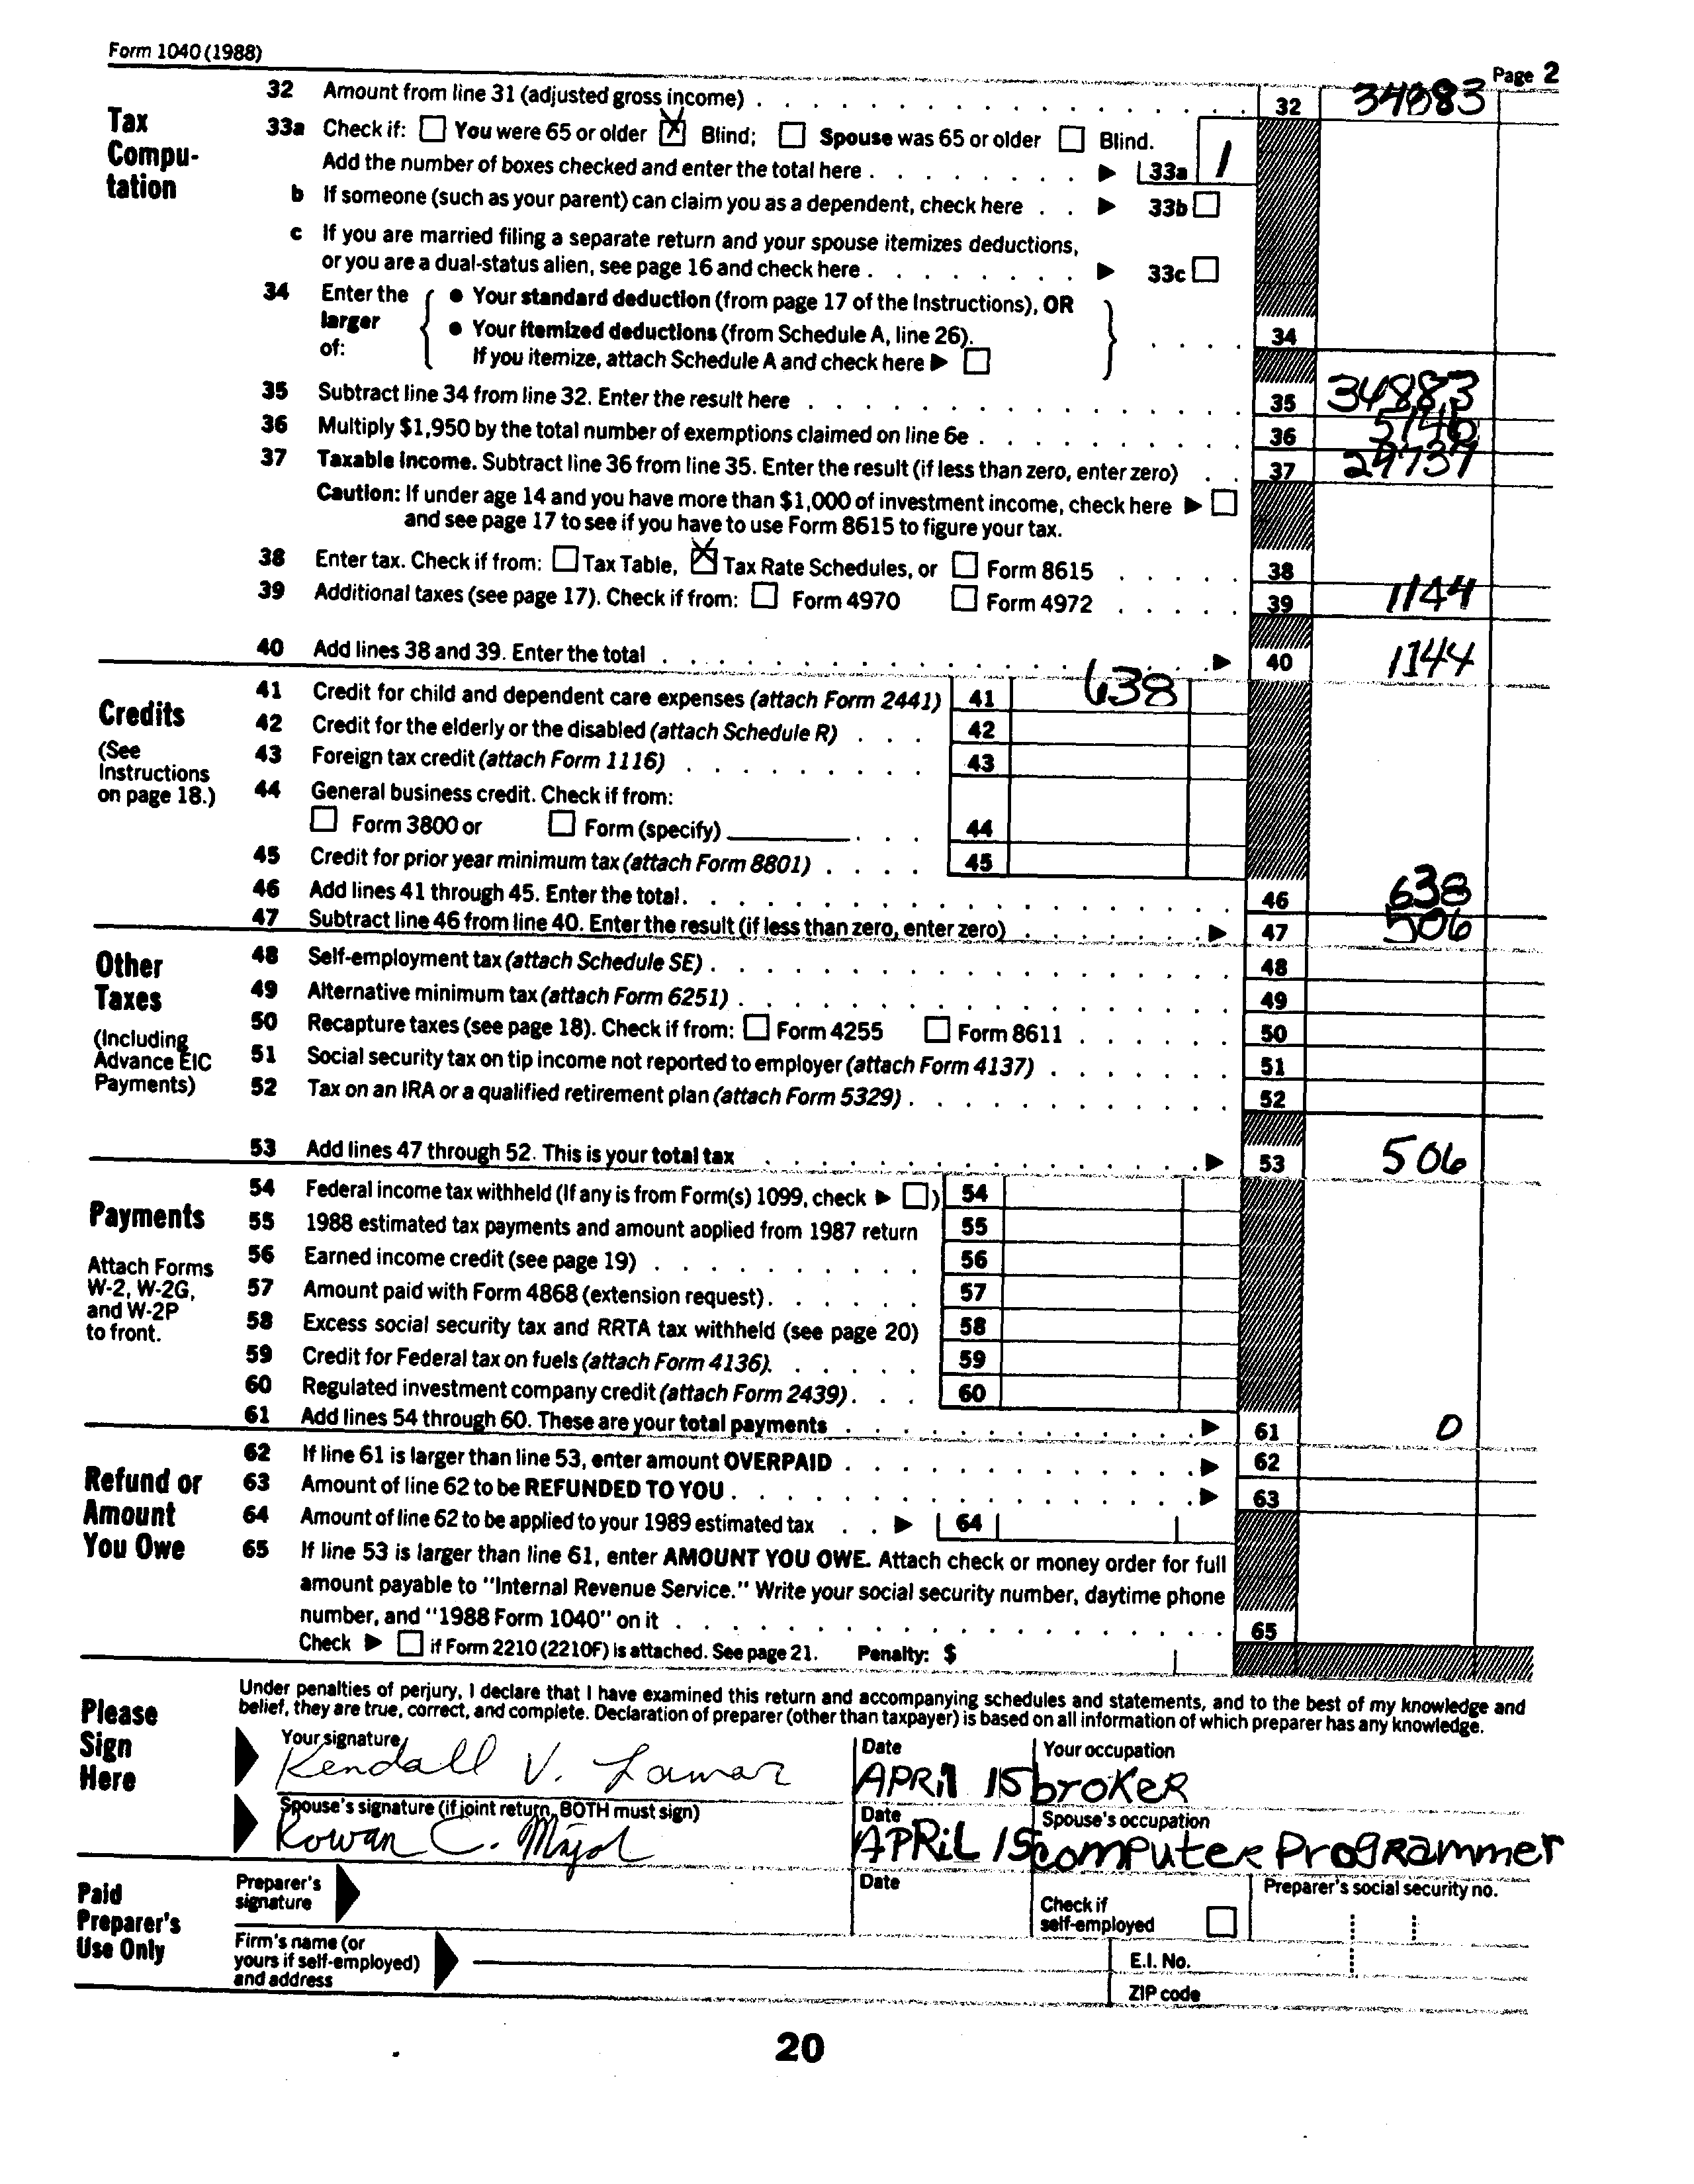 Form 1040 (1988)
Page 2
Tax Compu-tation
32 Amount from line 31 (adjusted gross income) 32
33a Check if: You were 65 or older X Blind; Spouse was 65 or older Blind.
Add the number of boxes checked and enter the total here 33a 1
b If someone (such as your parent) can claim you as a dependent, check here 33b
c If you are married filing a separate return and your spouse itemizes deductions,
or you are a dual-status alien, see page 16 and check here 33c
34 Enter the larger of: • Your standard deduction (from page 17 of the Instructions), OR
• Your itemized deductions (from Schedule A, line 26).
If you itemize, attach Schedule A and check here 34
35 Subtract line 34 from line 32. Enter the result here 35 34883
36 Multiply $1,950 by the total number of exemptions claimed on line 6e 36 5146
37 Taxable income. Subtract line 36 from line 35. Enter the result (if less than zero, enter zero) 37 29737
Caution: If under age 14 and you have more than $1,000 of investment income, check here
and see page 17 to see if you have to use Form 8615 to figure your tax.
38 Enter tax. Check if from: Tax Table, X Tax Rate Schedules, or Form 8615 38
39 Additional taxes (see page 17). Check if from: Form 4970 Form 4972 39 1144
40 Add lines 38 and 39. Enter the total 40 1144
Credits
(See Instructions on page 18.)
41 Credit for child and dependent care expenses (attach Form 2441) 41 638
42 Credit for the elderly or the disabled (attach Schedule R) 42
43 Foreign tax credit (attach Form 1116) 43
44 General business credit. Check if from:
Form 3800 or Form (specify) 44
45 Credit for prior year minimum tax (attach Form 8801) 45
46 Add lines 41 through 45. Enter the total. 46 638
47 Subtract line 46 from line 40. Enter the result (if less than zero, enter zero) 47 506
Other Taxes
(Including Advance EIC Payments)
48 Self-employment tax (attach Schedule SE) 48
49 Alternative minimum tax (attach Form 6251) 49
50 Recapture taxes (see page 18). Check if from: Form 4255 Form 8611 50
51 Social security tax on tip income not reported to employer (attach Form 4137) 51
52 Tax on an IRA or a qualified retirement plan (attach Form 5329) 52
53 Add lines 47 through 52. This is your total tax 53 506
Payments
Attach Forms W-2, W-2G, and W-2P to front.
54 Federal income tax withheld (If any is from Form(s) 1099, check ) 54
55 1988 estimated tax payments and amount applied from 1987 return 55
56 Earned income credit (see page 19) 56
57 Amount paid with Form 4868 (extension request) 57
58 Excess social security tax and RRTA tax withheld (see page 20) 58
59 Credit for Federal tax on fuels (attach Form 4136). 59
60 Regulated investment company credit (attach Form 2439) 60
61 Add lines 54 through 60. These are your total payments 61 0
Refund or Amount You Owe
62 If line 61 is larger than line 53, enter amount OVERPAID 62
63 Amount of line 62 to be REFUNDED TO YOU 63
64 Amount of line 62 to be applied to your 1989 estimated tax 64
65 If line 53 is larger than line 61, enter AMOUNT YOU OWE. Attach check or money order for full
amount payable to "Internal Revenue Service." Write your social security number, daytime phone
number, and "1988 Form 1040" on it 65
Check if Form 2210 (2210F) is attached. See page 21. Penalty: $
Please Sign Here
Under penalties of perjury, I declare that I have examined this return and accompanying schedules and statements, and to the best of my knowledge and
belief, they are true, correct, and complete. Declaration of preparer (other than taxpayer) is based on all information of which preparer has any knowledge.
Your signature Date Your occupation
Kendall V. Lamar APRil 15 broKeR
Spouse's signature (if joint return, BOTH must sign) Date Spouse's occupation
Rowan C. Major APRiL 15 computeR ProgRammer
Paid Preparer's Use Only
Preparer's signature Date Check if self-employed Preparer's social security no.
Firm's name (or yours if self-employed) and address E.I. No.
ZIP code
20